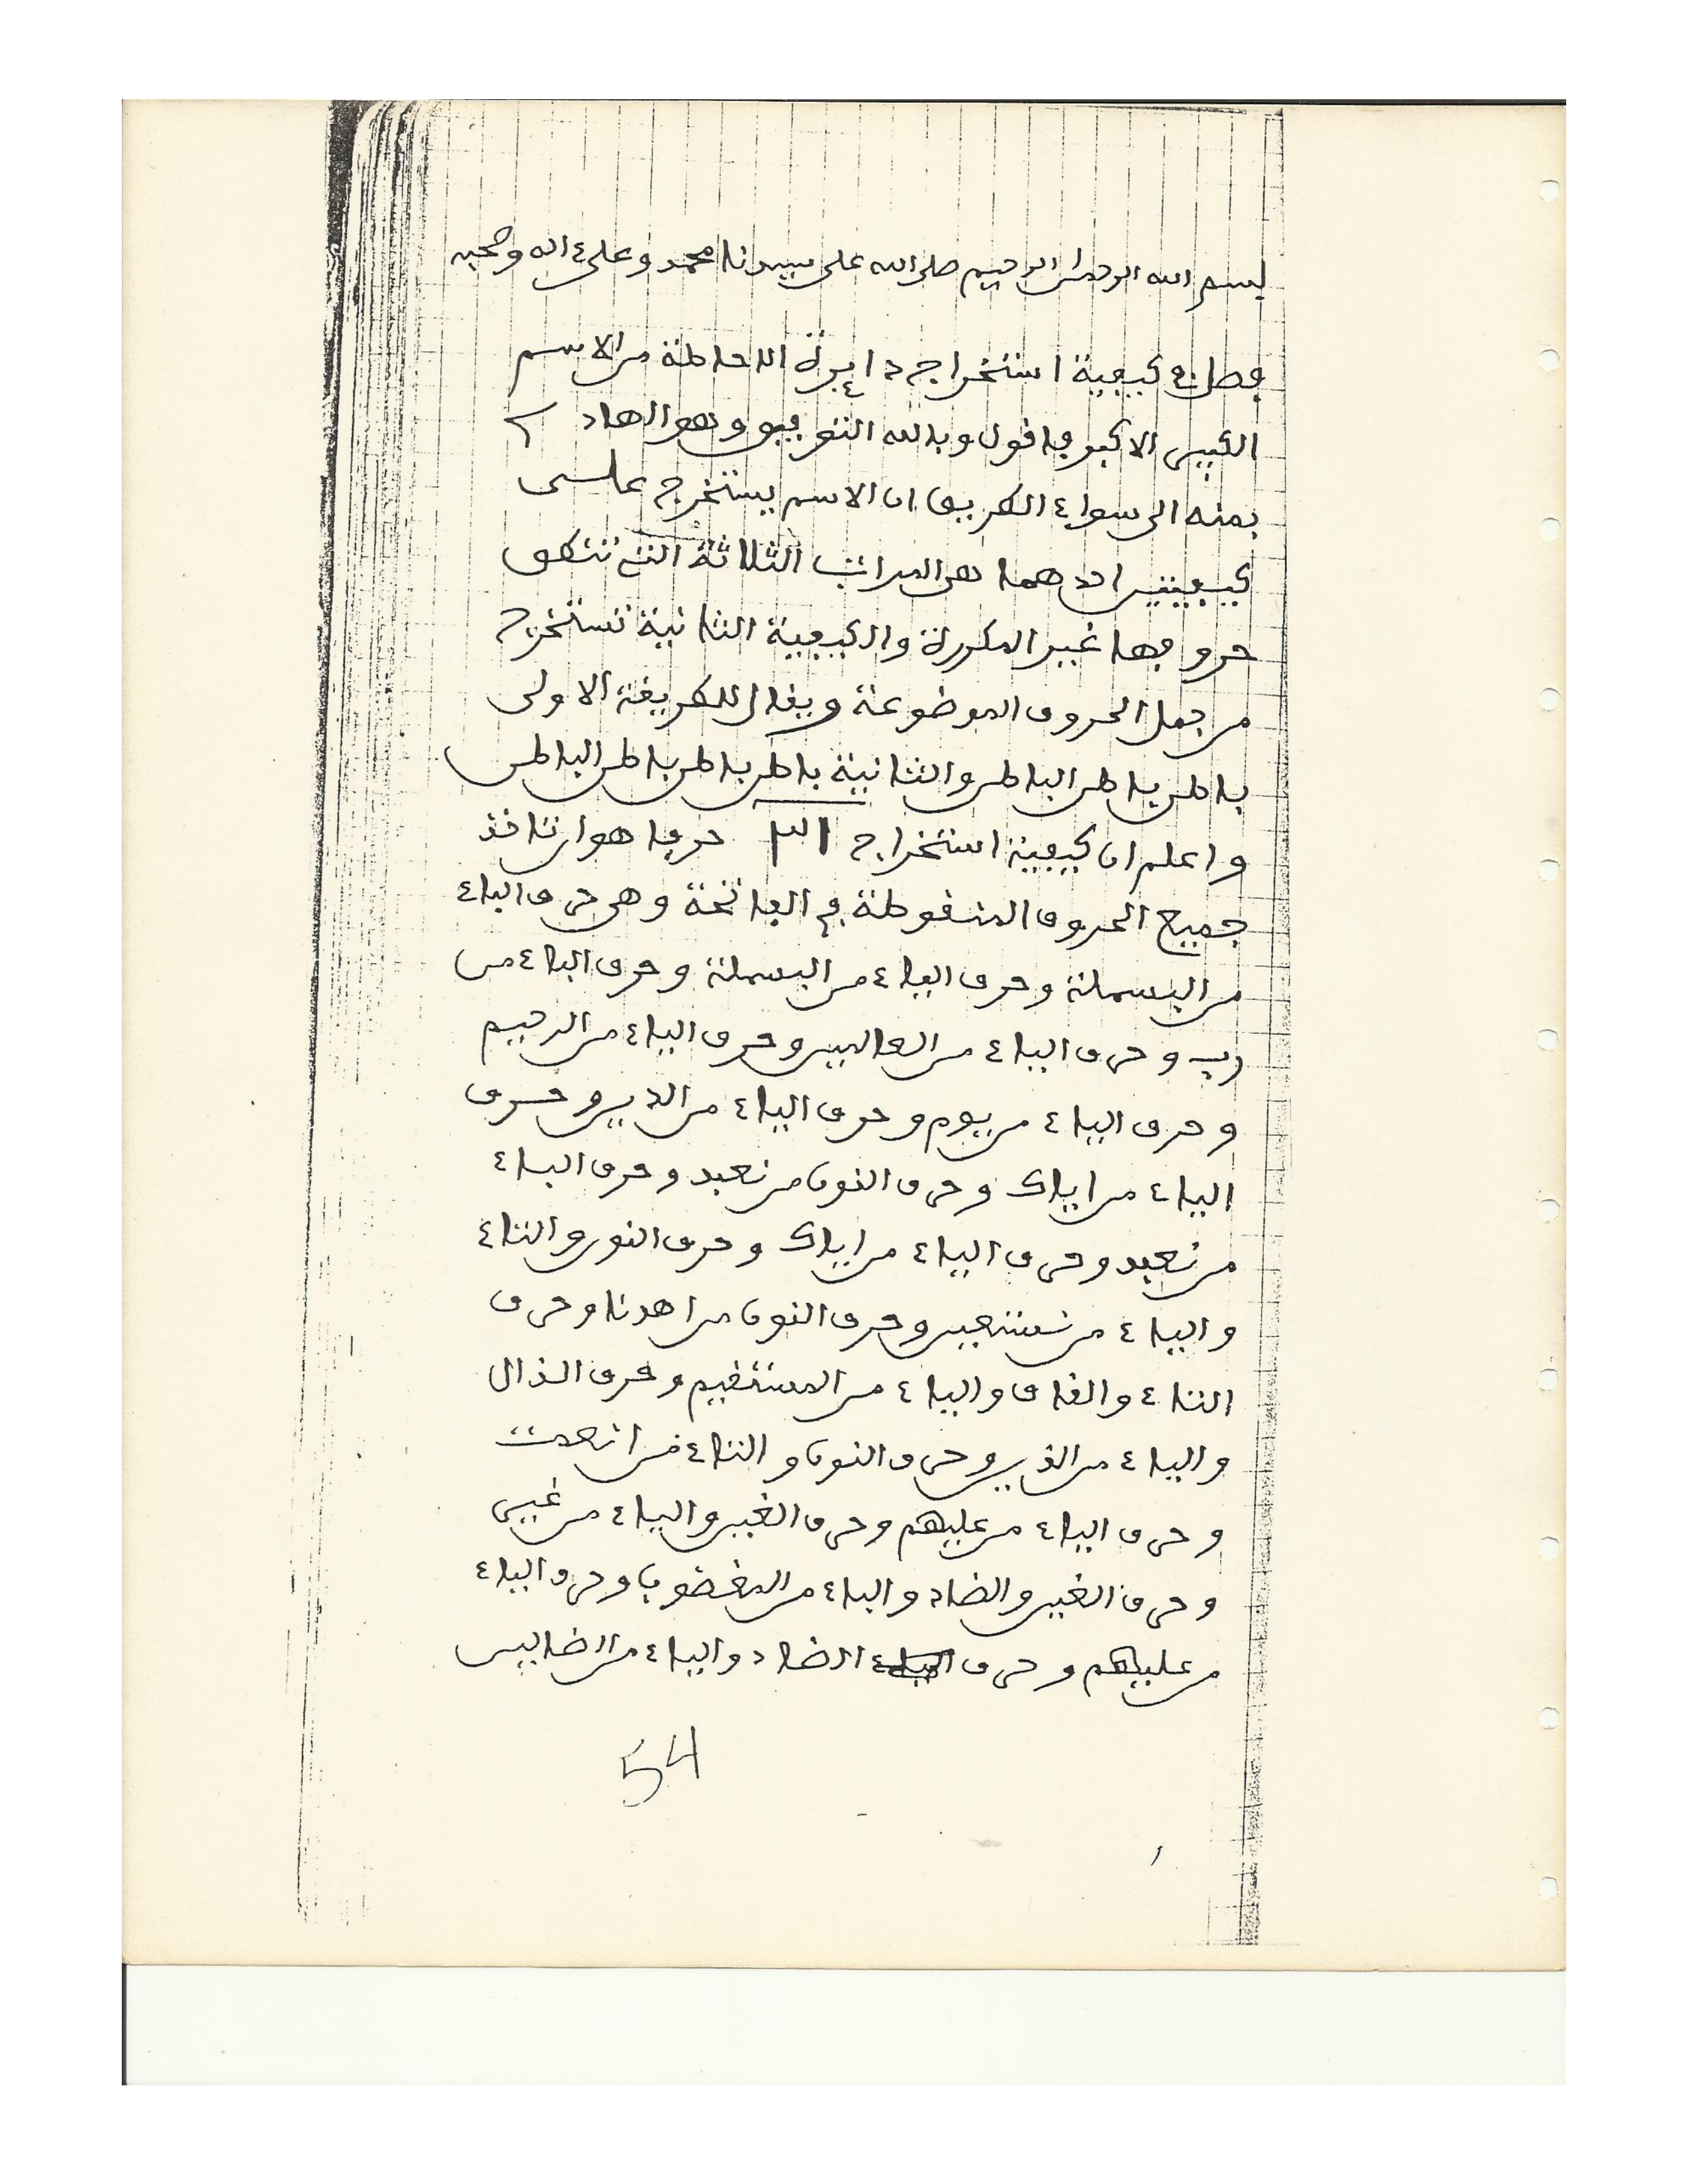 بسم الله الرحمان الرحيم صلى الله على سيدنا محمد وعلى ءاله وصحبه
فصل في كيفية استخراج دايرة الاحاطة من الاسم
الكبير الاكبر فاقول وبالله التوفيق وهو الهادي
بمنه الى سواء الطريق ان الاسم يستخرج على
كيفيتين احدهما هي المراتب الثلاثة التي تنطق
حروفها غير المكررة والكيفية الثانية تستخرج
من جمل الحروف الموضوعة ويقال للطريقة الاولى
باطن باطن الباطن والثانية باطن باطن باطن الباطن
واعلم ان كيفية استخراج ٣١ حرفا هو ان تاخذ
جميع الحروف المنقوطة في الفاتحة وهي حرف الباء
من البسملة وحرف الياء من البسملة وحرف الباء من
رب وحرف الياء من العالمين وحرف الياء من الرحيم
وحرف الياء من يوم وحرف الياء من الدين وحرف
الياء من اياك وحرف النون من نعبد وحرف الباء
من نعبد وحرف الياء من اياك وحرف النون والتاء
والياء من نستعين وحرف النون من اهدنا وحرف
التاء والقاف والياء من المستقيم وحرف الذال
والياء من الذين وحرف النون والتاء من انعمت
وحرف الياء من عليهم وحرف الغين والياء من غير
وحرف الغين والضاد والباء من المغضوب وحرف الياء
من عليهم وحرف الضاد والياء من الضالين
54